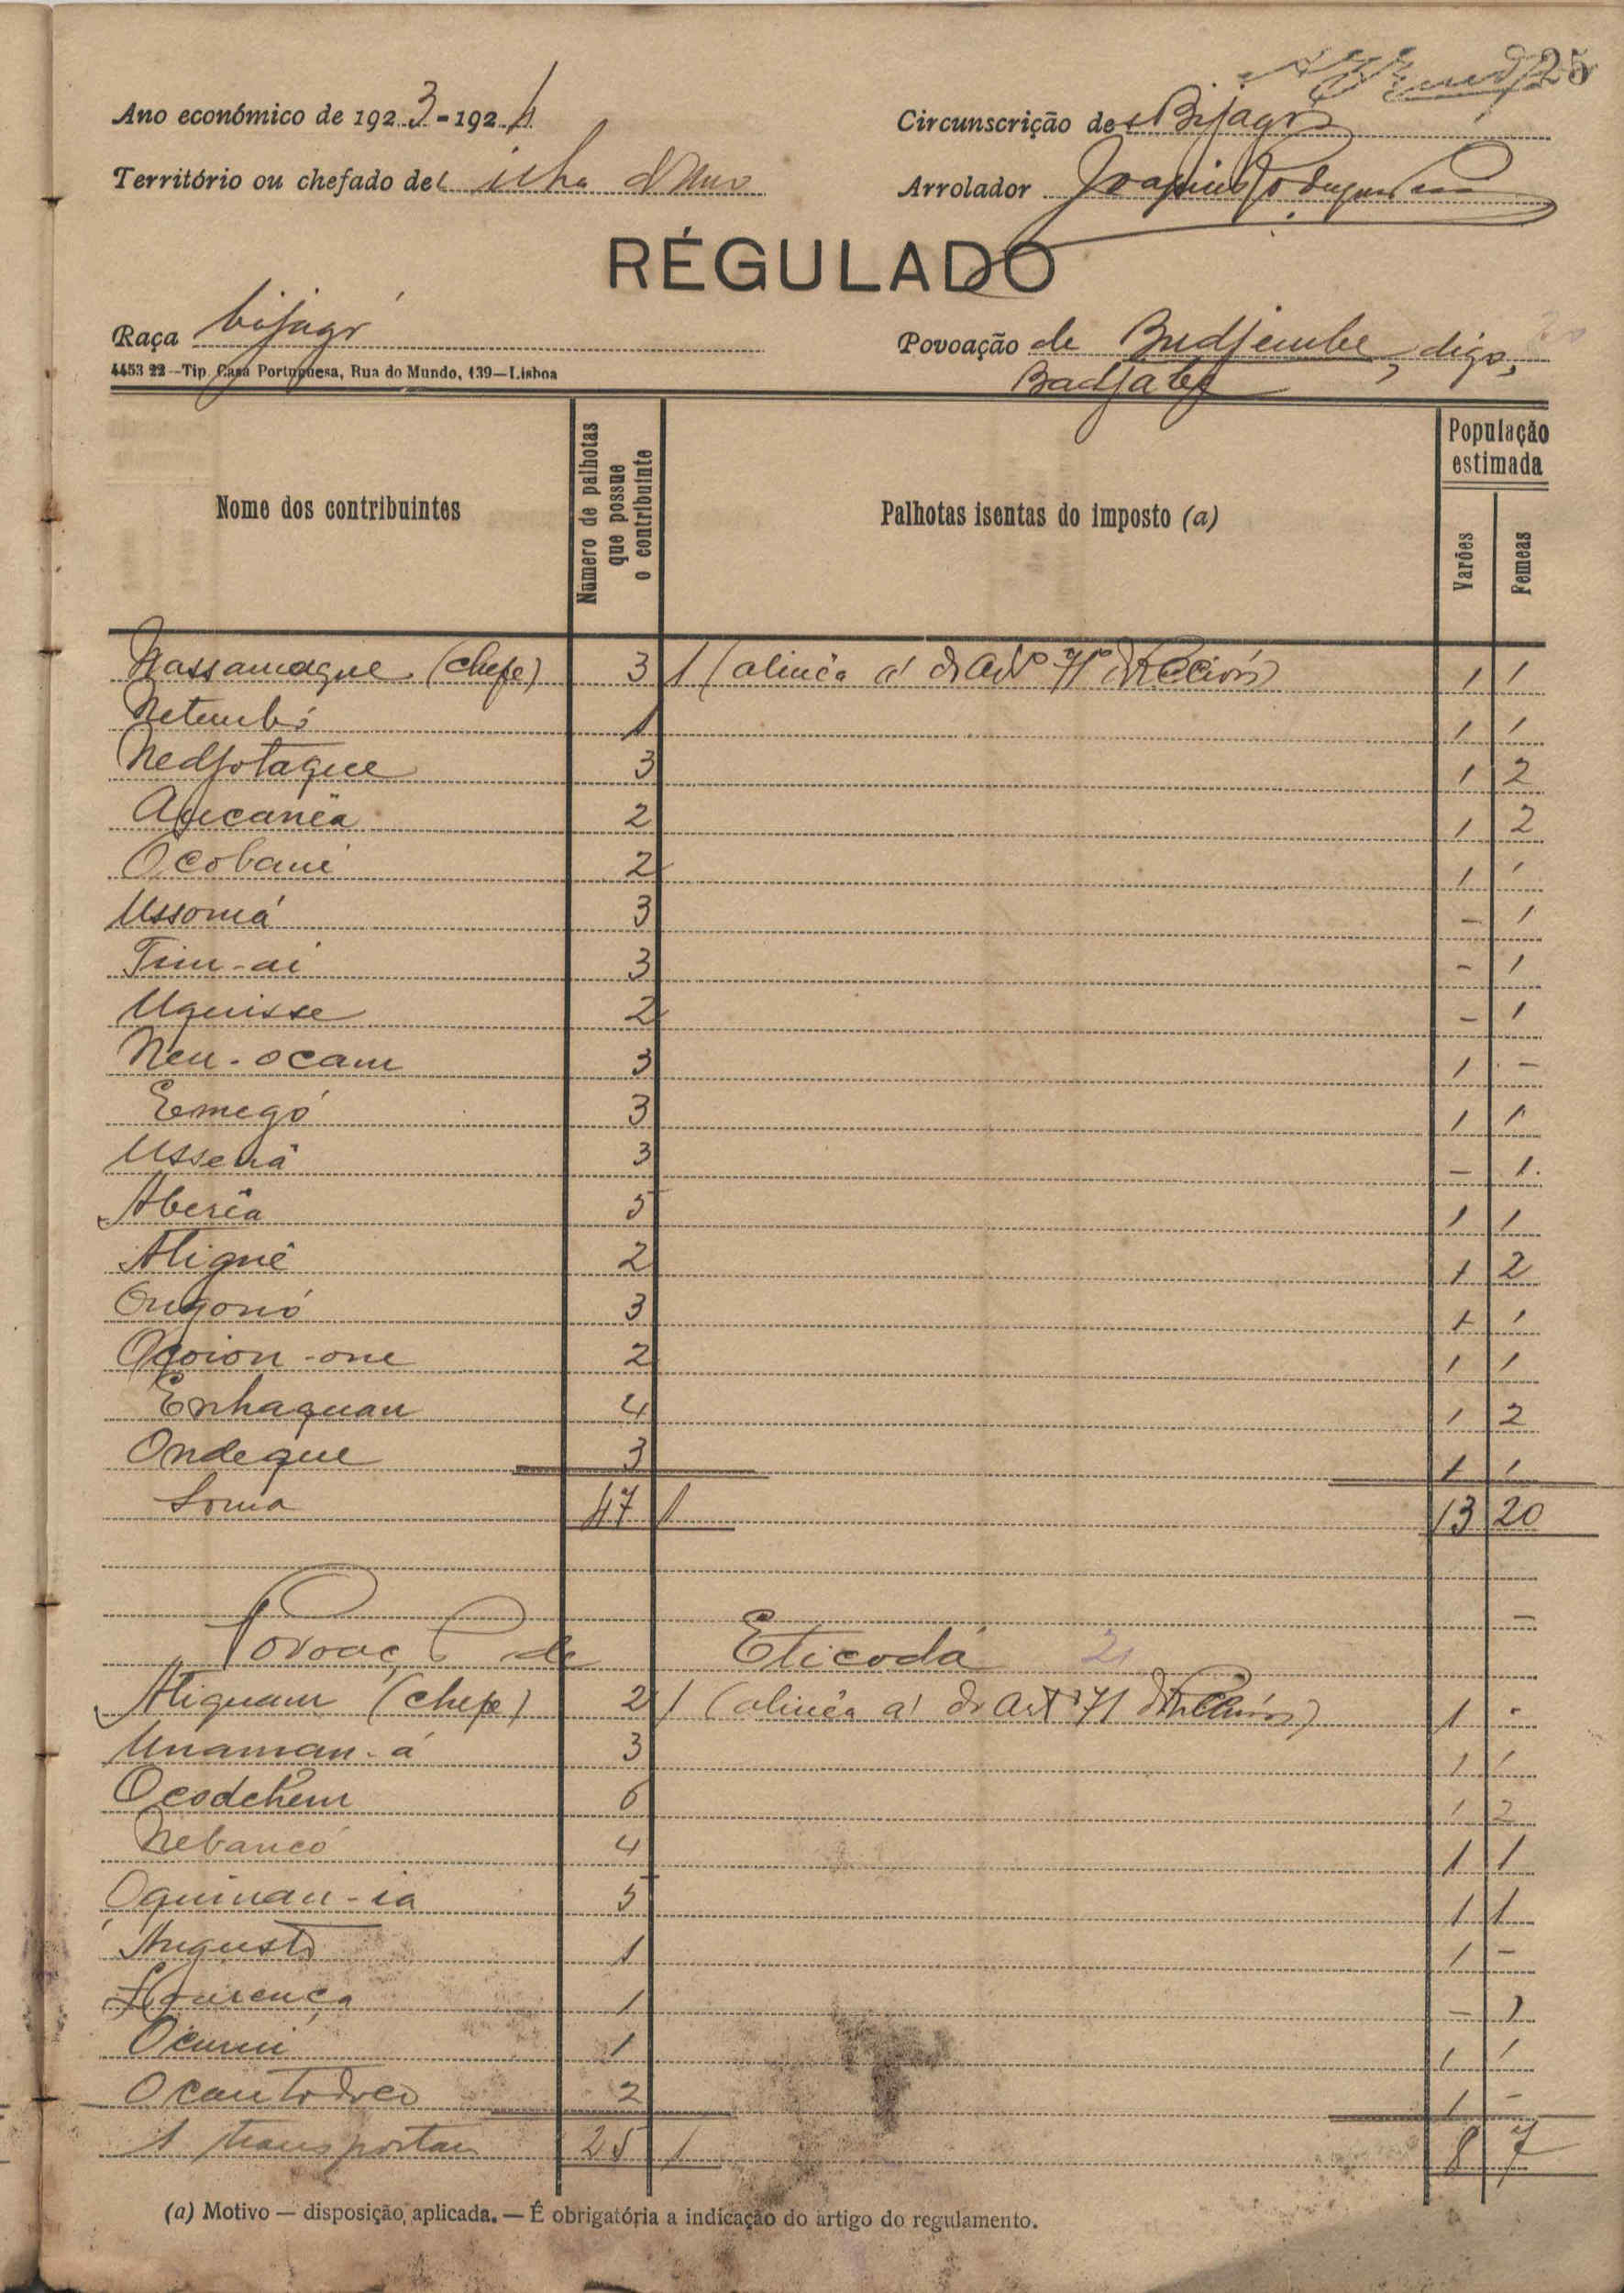 25
Ano económico de 1923-1924
Circunscrição de Bijagós
Território ou chefado de ilha
Arrolador Joaquim
RÉGULADO
Raça bijagó
Povoação de Budjembe, digo,
4453 22—Tip. Casa Portuguesa, Rua do Mundo, 139—Lisboa
Badjabe
Nome dos contribuintes
Número de palhotas que possue o contribuinte
Palhotas isentas do imposto (a)
População estimada
Varões
Femeas
Nassamague (chefe) 3 1 (alinêa a) do 71º 1 1
Netumbó 1 1 1
Nedjotaque 3 1 2
2 1 2
Ocobané 2 1 1
Ussomá 3 - 1
Tim-ai 3 - 1
Uguisse 2 - 1
Neu-ocam 3 1 -
Eemegó 3 1 1
Ussená 3 - 1
Aberêa 5 1 1
Atiguê 2 1 2
Ongonó 3 1 1
2 1 1
Enhaquan 4 1 2
Ondeque 3 1 1
Soma 47 1 13 20
Povoação de Eticodá
Atiguam (chefe) 2 1 (alinêa a) do art 71 1 -
Unaman-á 3 1 1
Ocodchem 6 1 2
Nebancó 4 1 1
Oquinan-ia 5 1 1
Augusto 1 1 -
Lourença 1 - 1
Ocumi 1 1 1
2 1 -
A transportar 25 1 8 7
(a) Motivo — disposição aplicada. — É obrigatória a indicação do artigo do regulamento.